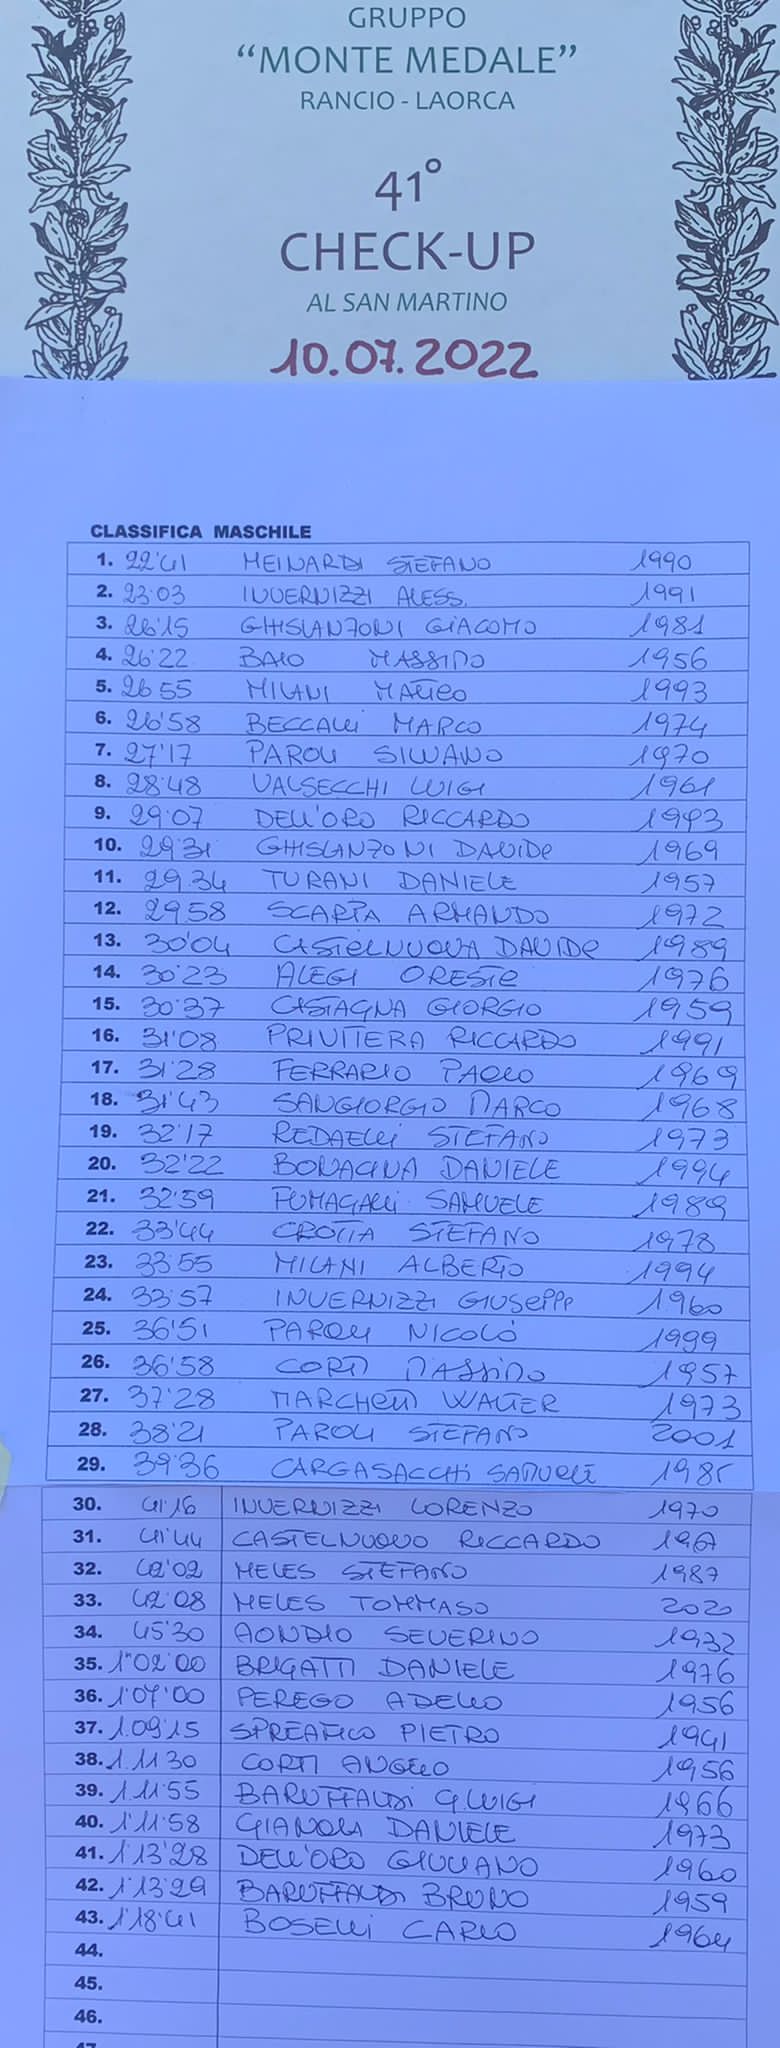 GRUPPO
“MONTE MEDALE”
RANCIO - LAORCA
41°
CHECK-UP
AL SAN MARTINO
10.07.2022
CLASSIFICA MASCHILE
1. 22'41 MEINARDI STEFANO 1990
2. 23.03 INVERNIZZI ALESS. 1991
3. 26'15 GHISLANZONI GIACOMO 1981
4. 26'22 BAIO MASSIMO 1956
5. 26 55 MILANI MATTEO 1993
6. 26'58 BECCALLI MARCO 1974
7. 27'17 PAROLI SILVANO 1970
8. 28'48 VALSECCHI LUIGI 1961
9. 29'07 DELL'ORO RICCARDO 1993
10. 29'31 GHISLANZONI DAVIDE 1969
11. 29.34 TURANI DANIELE 1957
12. 29.58 SCARPA ARMANDO 1972
13. 30'04 CASTELNUOVA DAVIDE 1989
14. 30'23 ALEGI ORESTE 1976
15. 30'37 CASTAGNA GIORGIO 1959
16. 31'08 PRIVITERA RICCARDO 1991
17. 31'28 FERRARIO PAOLO 1969
18. 31'43 SANGIORGIO MARCO 1968
19. 32'17 REDAELLI STEFANO 1973
20. 32'22 BONACINA DANIELE 1994
21. 32'59 FUMAGALLI SAMUELE 1989
22. 33'44 CROTTA STEFANO 1978
23. 33'55 MILANI ALBERTO 1994
24. 33'57 INVERNIZZI GIUSEPPE 1960
25. 36'51 PAROLI NICOLÒ 1999
26. 36'58 CORTI MASSIMO 1957
27. 37'28 MARCHETTI WALTER 1973
28. 38'21 PAROLI STEFANO 2001
29. 39'36 CARGASACCHI SAMUELE 1985
30. 41'16 INVERNIZZI LORENZO 1970
31. 41'44 CASTELNUOVO RICCARDO
32. 42'02 MELES STEFANO 1987
33. 42'08 MELES TOMMASO 2020
34. 45'30 AONDIO SEVERINO 1932
35. 1°02'00 BRIGATTI DANIELE 1976
36. 1'07'00 PEREGO ADELIO 1956
37. 1.09'15 SPREAFICO PIETRO 1941
38. 1.11 30 CORTI ANGELO 1956
39. 1.11'55 BARUFFALDI G.LUIGI 1966
40. 1'11'58 GIANOLA DANIELE 1973
41. 1'13'28 DELL'ORO GIULIANO 1960
42. 1'13'29 BARUFFALDI BRUNO 1959
43. 1'18'41 BOSELLI CARLO 1964
44.
45.
46.
47